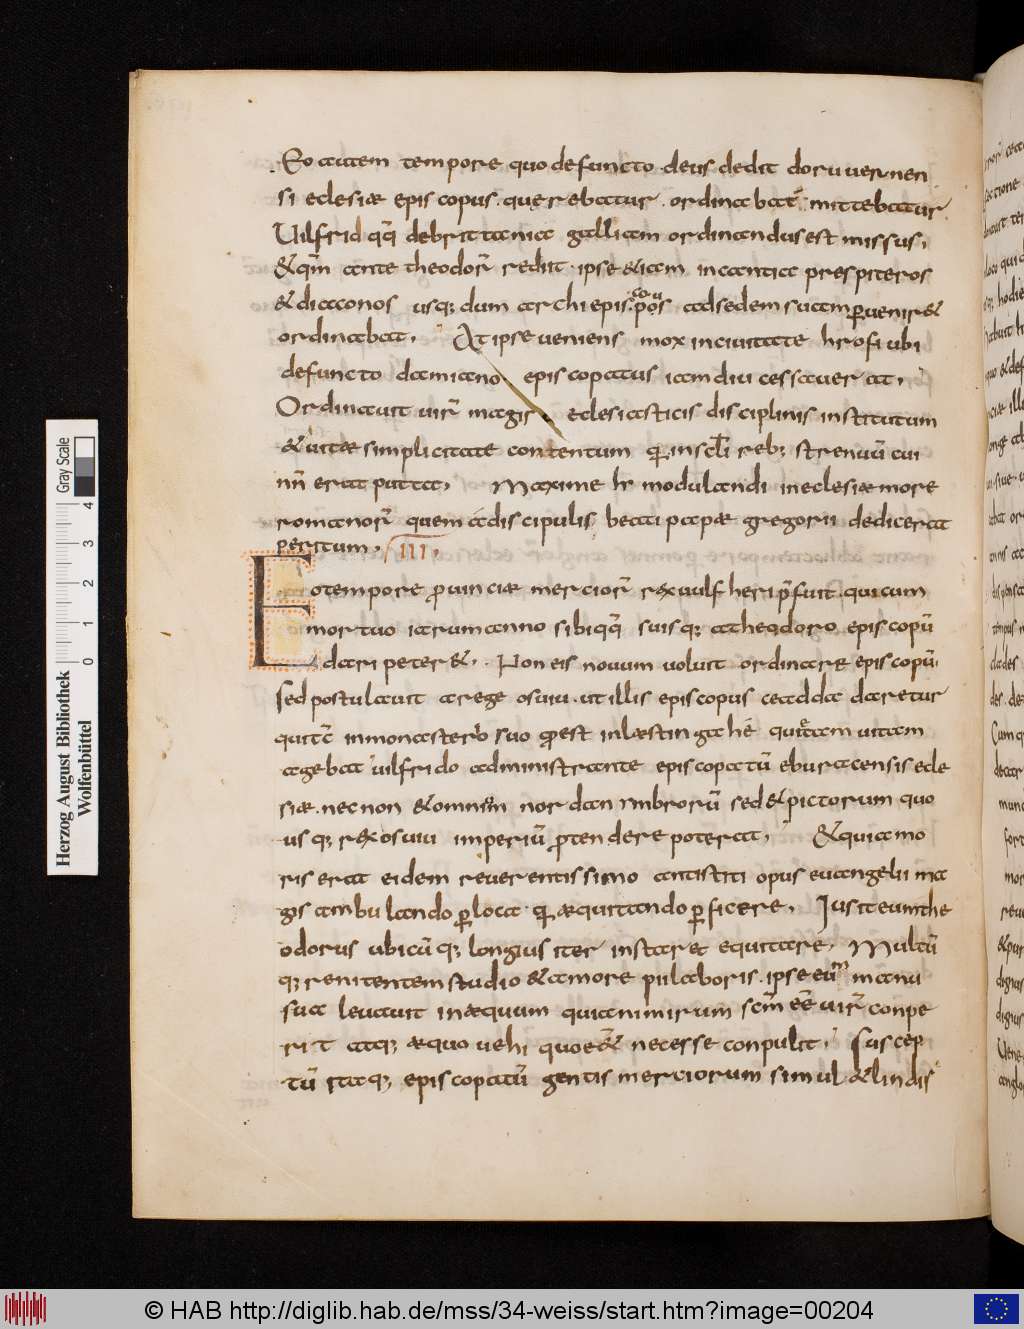 Eo autem tempore quo defuncto deus dedit doruuernen
si eclesiae episcopus. querebatur. ordinabat mittebatur
Uilfrid qq debrittania galliam ordinandus est missus,
&qm ante theodor rediit ipse &iam incantia prespiteros
& diaconos usq; dum archiepiscopos adsedem suam peruenir&
ordinabat, At ipse ueniens mox inciuitate hrofi ubi
defuncto damiano episcopatus iamdiu cessauerat,
Ordinauit uir magis eclesiasticis disciplinis institutum
& uitae simplicitate contentum insecli reb; strenuu cui
nn erat putta, Maxime hr modulandi ineclesiae more
romanor quem adiscipulis beati papae gregorii dedicerat
peritum, III,
Eotempore prouinciae mercior rex uulfheri pfuit quicum
mortuo iarumanno sibiqq suisq; atheodoro episcopu
dari peter&, Non eis nouum uoluit ordinare episcopu,
sed postulauit arege osuiu. ut illis episcopus ceadda daretur
quitc inmonasterio suo est inlaestingahe quietam uitam
agebat uilfrido administrante episcopatu eburacensis ecle
siae. necnon &omnium nordan imbroru sed &pictorum quo
usq; rex osuiu imperiu ptendere poterat, &quiamo
ris erat eidem reuerentissimo antistiti opus euangelii ma
gis ambulando ploca aequitando pficere, Iusit eum the
odorus ubicu q; longius iter instaret equitare, Multu
q; renitentem studio & amore pii laboris. ipse eum manu
sua leuauit inaequum quia nimirum scm ee uir conpe
rit atq; aequo uehi quoe& necesse conpulit, Suscep
tu itaq; episcopatu gentis merciorum simul &lindis
Herzog August Bibliothek
Wolfenbüttel
0 1 2 3 4
Gray Scale
© HAB http://diglib.hab.de/mss/34-weiss/start.htm?image=00204